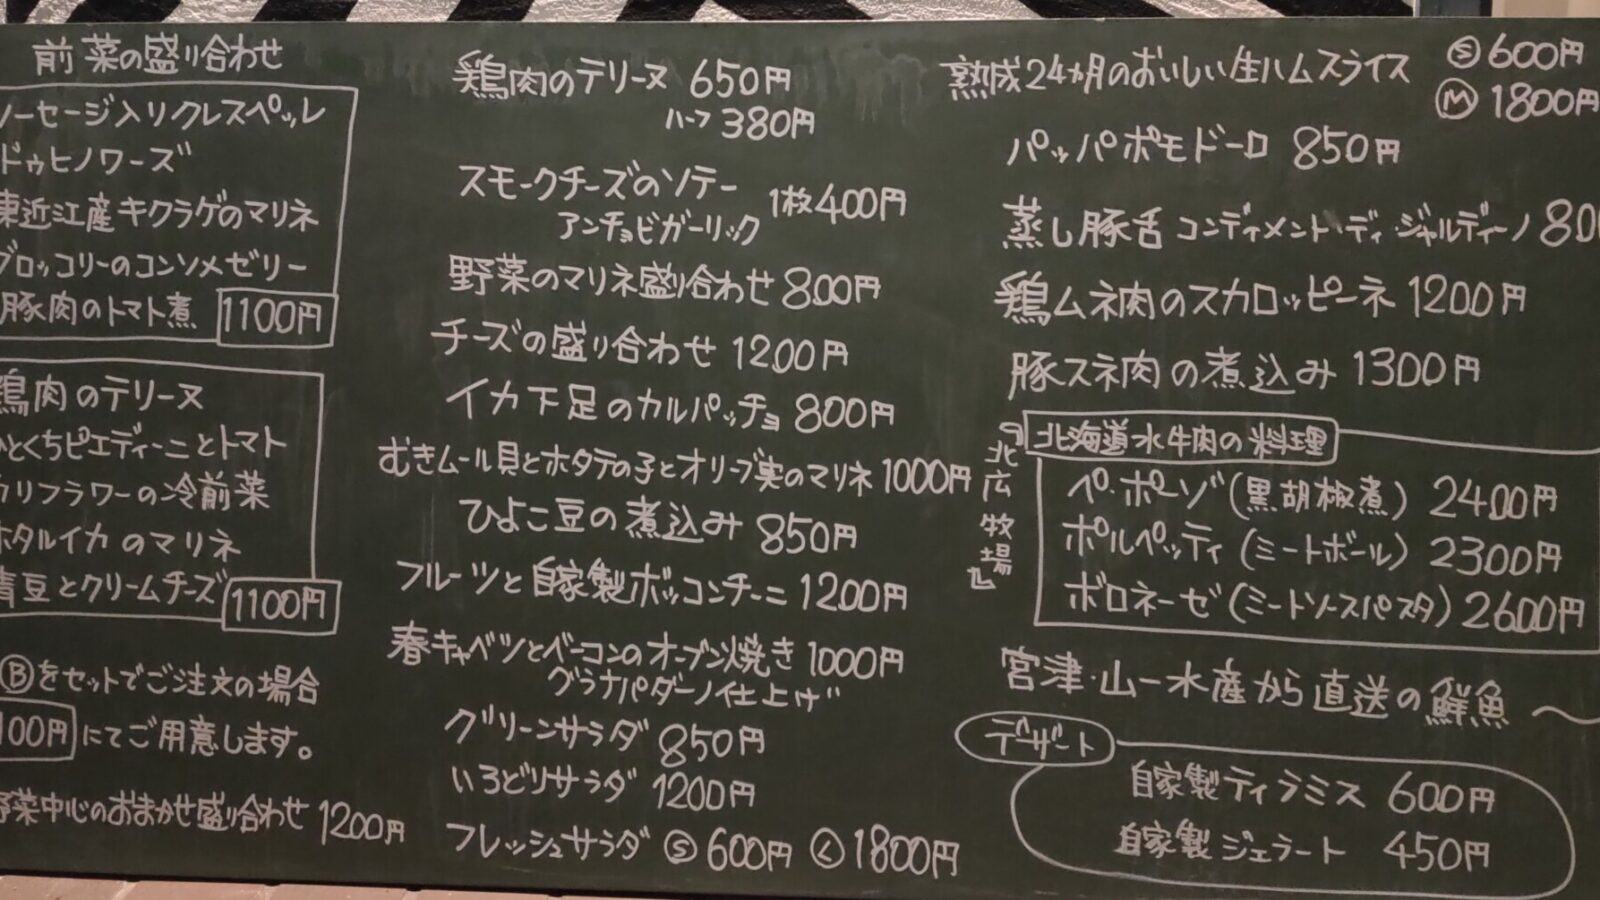 前菜の盛り合わせ
ソーセージ入リクレスペッレ
ドゥヒノワーズ
東近江産キクラゲのマリネ
ブロッコリーのコンソメゼリー
豚肉のトマト煮 1100円
鶏肉のテリーヌ
ひとくちピエディーニとトマト
カリフラワーの冷前菜
ホタルイカのマリネ
青豆とクリームチーズ 1100円
Ⓑをセットでご注文の場合
100円にてご用意します。
野菜中心のおまかせ盛り合わせ 1200円
鶏肉のテリーヌ 650円
ハーフ 380円
スモークチーズのソテー 1枚400円
アンチョビガーリック
野菜のマリネ盛り合わせ 800円
チーズの盛り合わせ 1200円
イカ下足のカルパッチョ 800円
むきムール貝とホタテの子とオリーブ実のマリネ 1000円
ひよこ豆の煮込み 850円
フルーツと自家製ボッコンチーニ 1200円
春キャベツとベーコンのオーブン焼き 1000円
グラナパダーノ仕上げ
グリーンサラダ 850円
いろどりサラダ 1200円
フレッシュサラダ Ⓢ600円 Ⓛ1800円
熟成24カ月のおいしい生ハムスライス Ⓢ600円
Ⓜ1800円
パッパポモドーロ 850円
蒸し豚舌 コンディメント・ディ・ジャルディーノ 800
鶏ムネ肉のスカロッピーネ 1200円
豚スネ肉の煮込み 1300円
『北広牧場』
北海道水牛肉の料理
ペ・ポーゾ(黒胡椒煮) 2400円
ポルペッティ(ミートボール) 2300円
ボロネーゼ(ミートソースパスタ) 2600円
宮津・山一水産から直送の鮮魚 〜
デザート
自家製ティラミス 600円
自家製ジェラート 450円